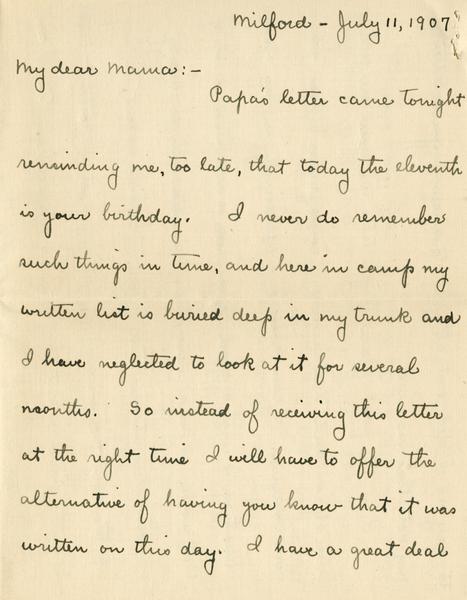 Milford - July 11, 1907
My dear Mama:-
Papa's letter came tonight
reminding me, too late, that today the eleventh
is your birthday. I never do remember
such things in time, and here in camp my
written list is buried deep in my trunk and
I have neglected to look at it for several
months. So instead of receiving this letter
at the right time I will have to offer the
alternative of having you know that it was
written on this day. I have a great deal